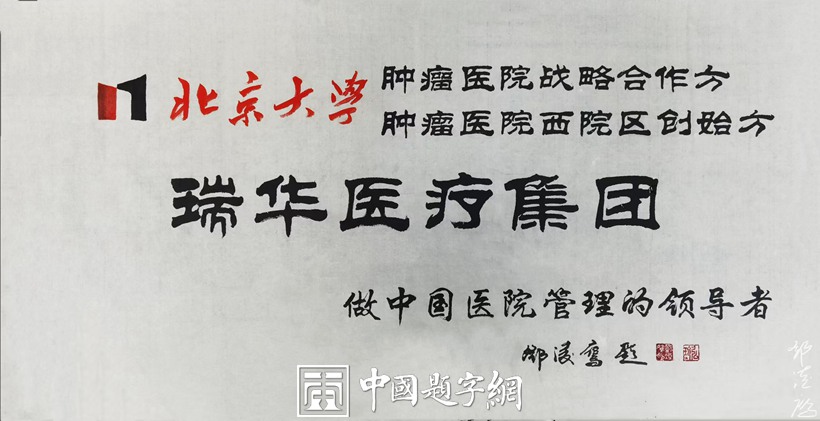 北京大学
肿瘤医院战略合作方
肿瘤医院西院区创始方
瑞华医疗集团
做中国医院管理的领导者
题
中國題字網